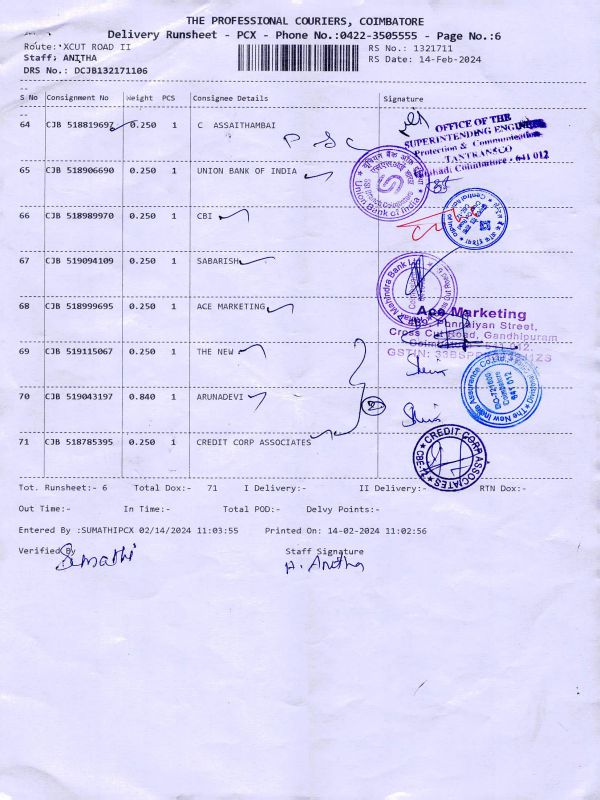 THE PROFESSIONAL COURIERS, COIMBATORE
Delivery Runsheet - PCX - Phone No.:0422-3505555 - Page No.:6
Route: XCUT ROAD II RS No.: 1321711
Staff: ANITHA RS Date: 14-Feb-2024
DRS No.: DCJB132171106
S No Consignment No Weight PCS Consignee Details Signature
64 CJB 518819697 0.250 1 C ASSAITHAMBAI
OFFICE OF THE
SUPERINTENDING ENGINEER
Protection & Communication,
TANTRANSCO
Coimbatore - 641 012
65 CJB 518906690 0.250 1 UNION BANK OF INDIA
Union Bank of India
66 CJB 518989970 0.250 1 CBI
67 CJB 519094109 0.250 1 SABARISH
Mahindra Bank Ltd
68 CJB 518999695 0.250 1 ACE MARKETING
Ace Marketing
Ponnaiyan Street,
Cross Cut Road, Gandhipuram
69 CJB 519115067 0.250 1 THE NEW
The New India Assurance Co.Ltd.
641 012
70 CJB 519043197 0.840 1 ARUNADEVI
2
71 CJB 518785395 0.250 1 CREDIT CORP ASSOCIATES
CREDIT CORP ASSOCIATES
CBE-12
Tot. Runsheet:- 6 Total Dox:- 71 I Delivery:- II Delivery:- RTN Dox:-
Out Time:- In Time:- Total POD:- Delvy Points:-
Entered By :SUMATHIPCX 02/14/2024 11:03:55 Printed On: 14-02-2024 11:02:56
Verified By Staff Signature
Sumathi A. Anitha